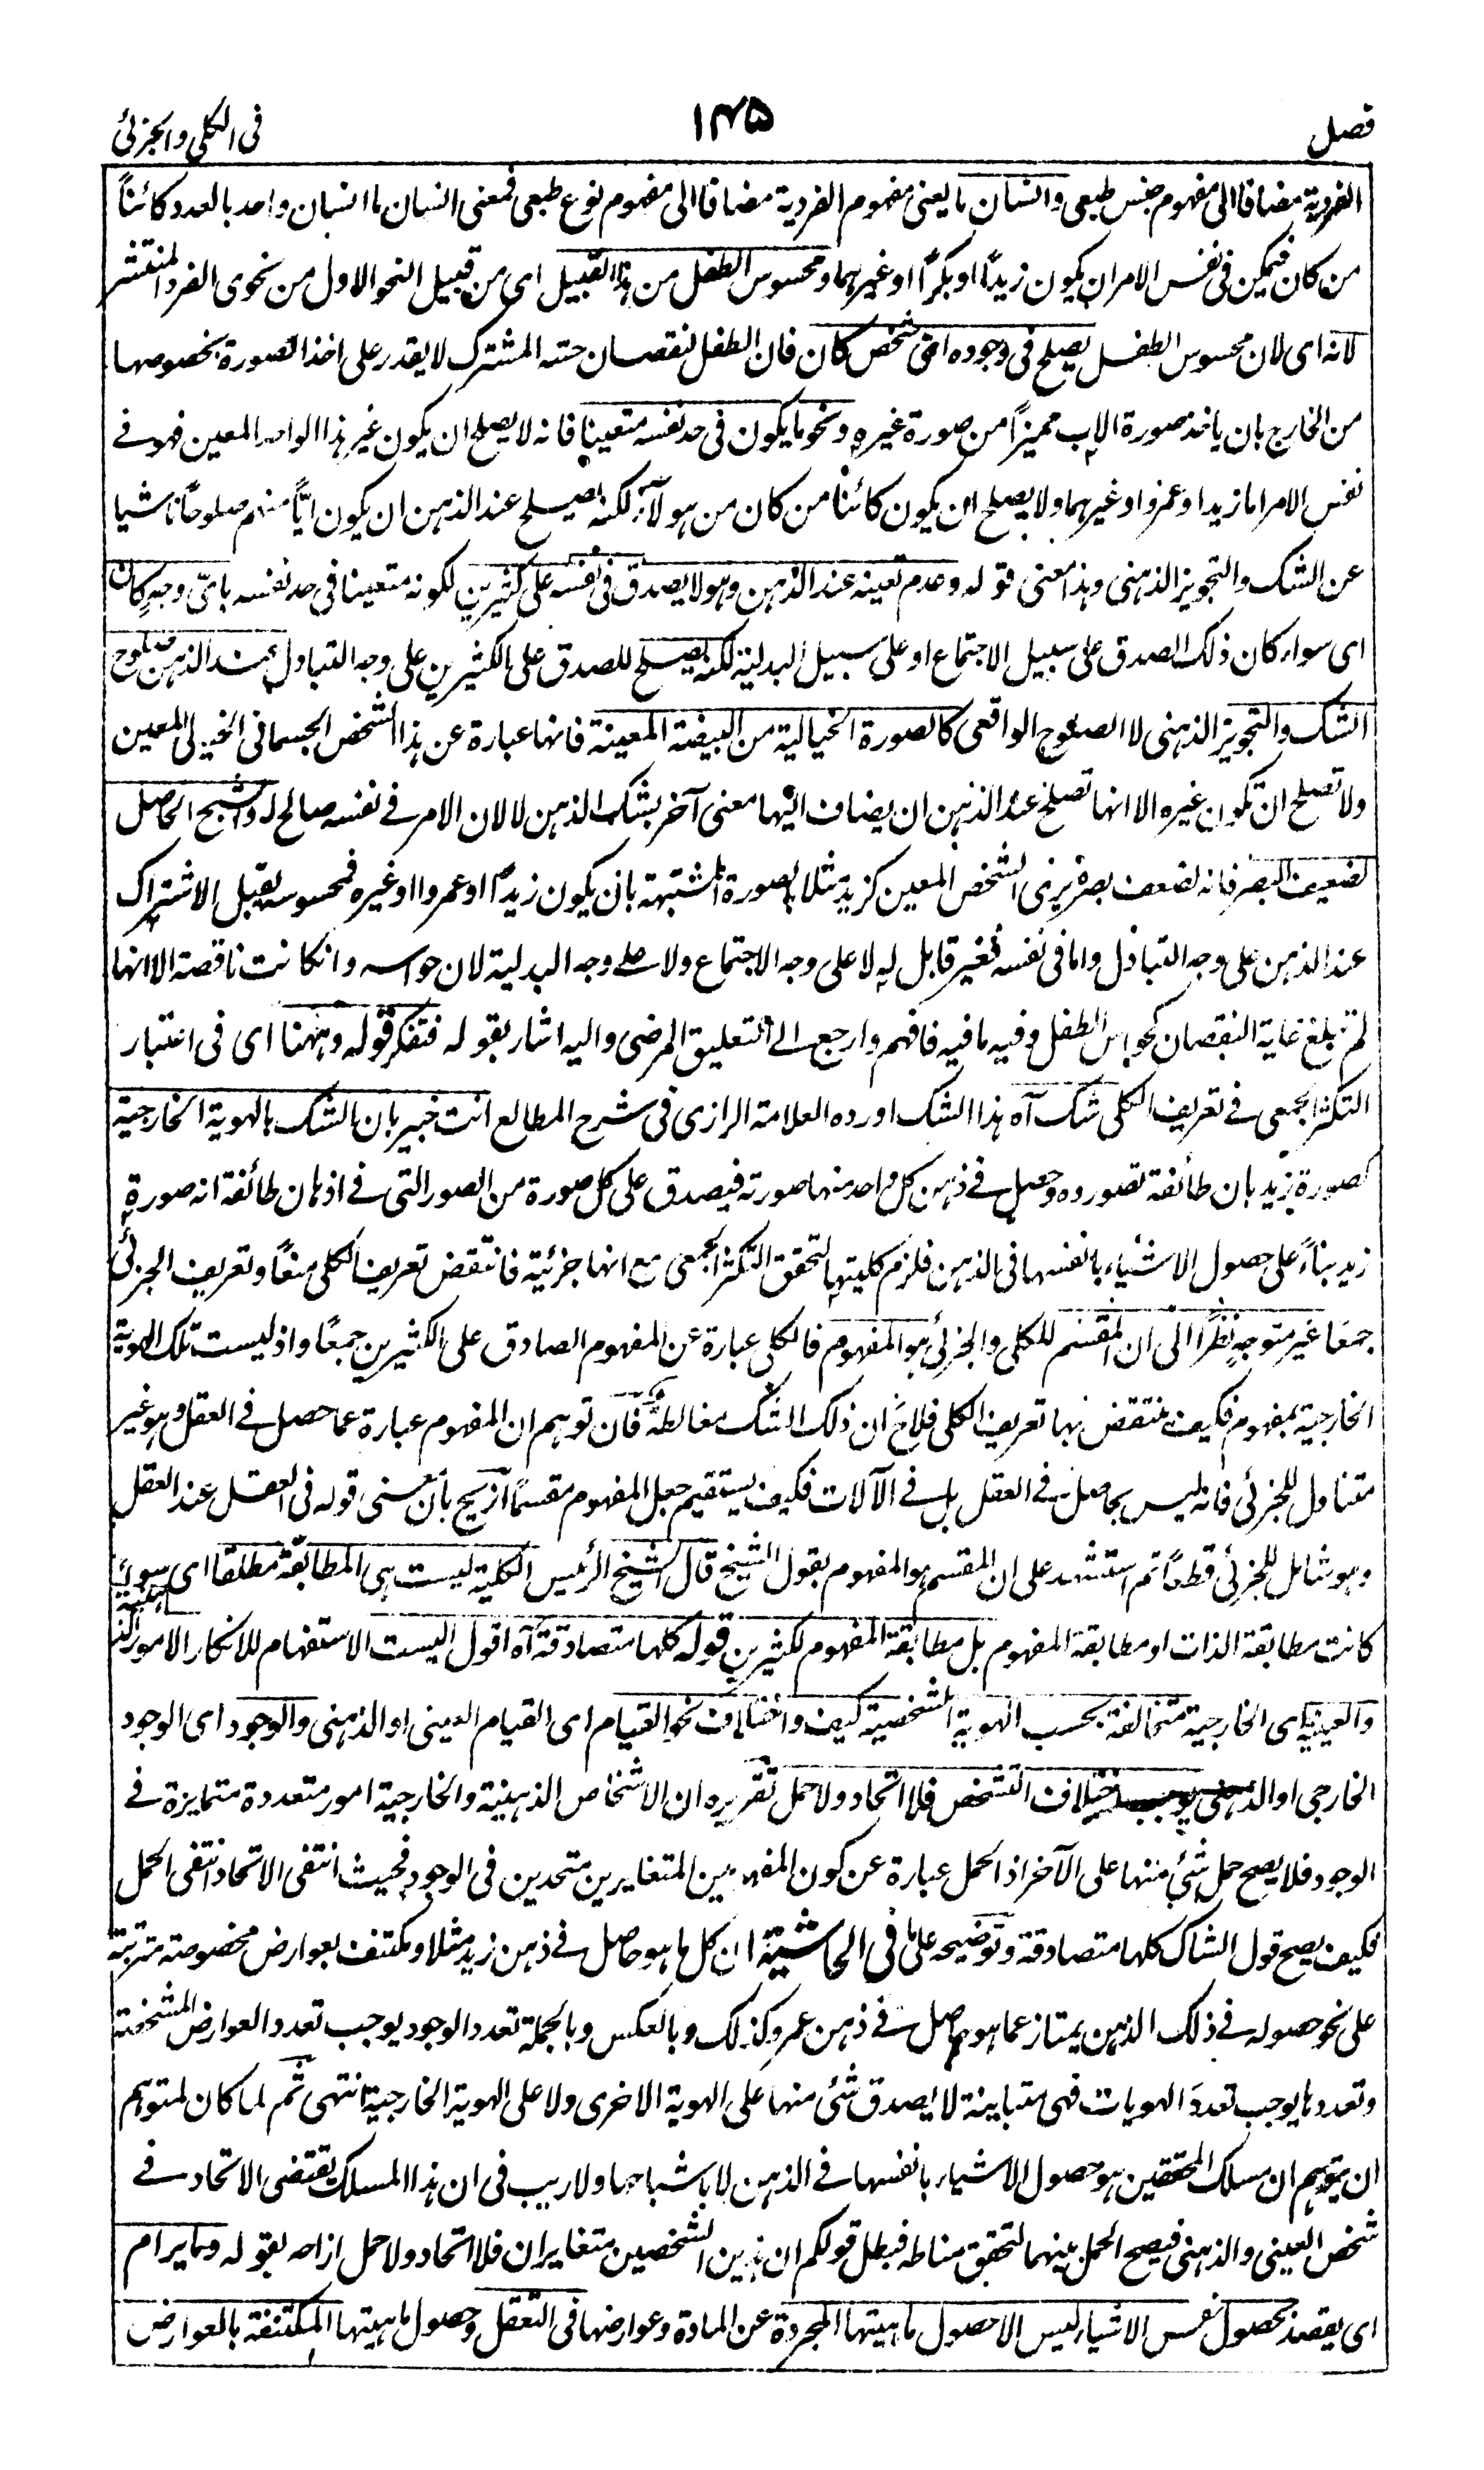 فصل ١٣٥ فى الكلى والجزئى
الفردية مضافا الى مفهوم جنس طبعى وانسان ما يعنى مفهوم الفردية مضافا الى مفهوم نوع طبعى فمعنى انسان ما انسان واحد بالعدد كائناً
من كان فيمكن فى نفس الامر ان يكون زيداً او بكراً او غيرهما ومحسوس الطفل من هذا القبيل اى من قبيل النحو الاول من نحوى الفرد المنتشر
لانه اى لان محسوس الطفل يصلح فى وجوده اىّ شخص كان فان الطفل لنقصان حسّه المشترك لا يقدر على اخذ الصورة بخصوصها
من الخارج بان ياخذ صورة الاب مميزاً من صورة غيره ونحو ما يكون فى حد نفسه متعينا فانه لا يصلح ان يكون غير هذا الواحد المعين فهو فى
نفس الامر اما زيدا او عمروا او غيرهما ولا يصلح ان يكون كائناً من كان من هولآء لكنه يصلح عند الذهن ان يكون ايّاً منهم صلوحاً ناشيا
عن الشك والتجويز الذهنى وهذا معنى قوله وعدم تعينه عند الذهن وهو لا يصدق فى نفسه على كثيرين لكونه متعينا فى حد نفسه باىّ وجهٍ كان
اى سواء كان ذلك الصدق على سبيل الاجتماع او على سبيل البدلية لكنه يصلح للصدق على الكثيرين على وجه التبادل عند الذهن صلوح
الشك والتجويز الذهنى لا الصلوح الواقعى كالصورة الخيالية من البيضة المعينة فانها عبارة عن هذا الشخص الجسمانى الخيالى المعين
ولا تصلح ان تكون غيره الا انها تصلح عند الذهن ان يضاف اليها معنى آخر بشك الذهن لا لان الامر فى نفسه صالح له والشبح الحاصل
لضعيف البصر فانه لضعف بصره يرى الشخص المعين كزيد مثلا بصورة المشتبهة بان يكون زيداً او عمروا او غيره فمحسوسه يقبل الاشتراك
عند الذهن على وجه التبادل واما فى نفسه فغير قابل له لا على وجه الاجتماع ولا على وجه البدلية لان حواسه وان كانت ناقصة الا انها
لم تبلغ غاية النقصان كحواس الطفل وفيه ما فيه فافهم وارجع الى التعليق المرضى واليه اشار بقوله فتفكر قوله وههنا اى فى اعتبار
التكثر الجمعى فى تعريف الكلى شك آه هذا الشك اورده العلامة الرازى فى شرح المطالع انت خبير بان الشك بالهوية الخارجية
كصورة زيد بان طائفة تصوروه وحصل فى ذهن كل واحد منها صورته فيصدق على كل صورة من الصور التى فى اذهان طائفة انه صورة
زيد بناءً على حصول الاشياء بانفسها فى الذهن فلزم كليتها لتحقق التكثر الجمعى مع انها جزئية فانتقض تعريف الكلى منعًا وتعريف الجزئى
جمعًا غير متوجهٍ نظرًا الى ان المقسم للكلى والجزئى هو المفهوم فالكلى عبارة عن المفهوم الصادق على الكثيرين جمعًا واذ ليست تلك الهوية
الخارجية بمفهوم فكيف ينتقض بها تعريف الكلى فلاح ان ذلك الشك مغالطة فان توهم ان المفهوم عبارة عما حصل فى العقل وهو غير
متناول للجزئى فانه ليس بحاصل فى العقل بل فى الآلات فكيف يستقيم جعل المفهوم مقسمًا ازيح بان معنى قوله فى العقل عند العقل
وهو شامل للجزئى قطعاً ثم استشهد على ان المقسم هو المفهوم بقول الشيخ قال الشيخ الرئيس الكلية ليست هى المطابقة مطلقا اى سواء
كانت مطابقة الذات او مطابقة المفهوم بل مطابقة المفهوم لكثيرين قوله كلها متصادقة آه اقول اليست الاستفهام للانكار الامور الذهنية
والعينية اى الخارجية متخالفة بحسب الهوية الشخصية كيف واختلاف نحو القيام اى القيام العينى او الذهنى والوجود اى الوجود
الخارجى او الذهنى يوجب اختلاف التشخص فلا اتحاد ولا حمل تقريره ان الاشخاص الذهنية والخارجية امور متعددة متمايزة فى
الوجود فلا يصح حمل شئ منها على الآخر اذ الحمل عبارة عن كون المفهومين المتغايرين متحدين فى الوجود فحيث انتفى الاتحاد انتفى الحمل
فكيف يصح قول الشاك كلها متصادقة وتوضيحه على ما فى الحاشية ان كل ما هو حاصل فى ذهن زيد مثلا ومكتنف بعوارض مخصوصة مترتبة
على نحو حصوله فى ذلك الذهن يمتاز عما هو حاصل فى ذهن عمرو كذلك وبالعكس وبالجملة تعدد الوجود يوجب تعدد العوارض المشخصة
وتعددها يوجب تعدد الهويات فهى متباينة لا يصدق شئ منها على الهوية الاخرى ولا على الهوية الخارجية انتهى ثم لما كان لمتوهم
ان يتوهم ان مسلك المحققين هو حصول الاشياء بانفسها فى الذهن لا باشباحها ولا ريب فى ان هذا المسلك يقتضى الاتحاد فى
شخص العينى والذهنى فيصح الحمل بينهما لتحقق مناطه فبطل قولكم ان هذين الشخصين متغايران فلا اتحاد ولا حمل ازاحه بقوله وما يرام
اى يقصد بحصول نفس الاشياء ليس الا حصول ماهيتها المجردة عن المادة وعوارضها فى التعقل وحصول ماهيتها المكتنفة بالعوارض